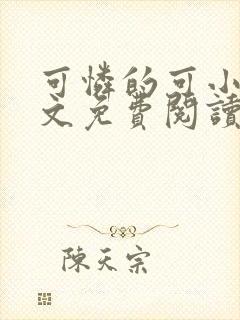 可憐的可小
文免費閱讀
陳天宗